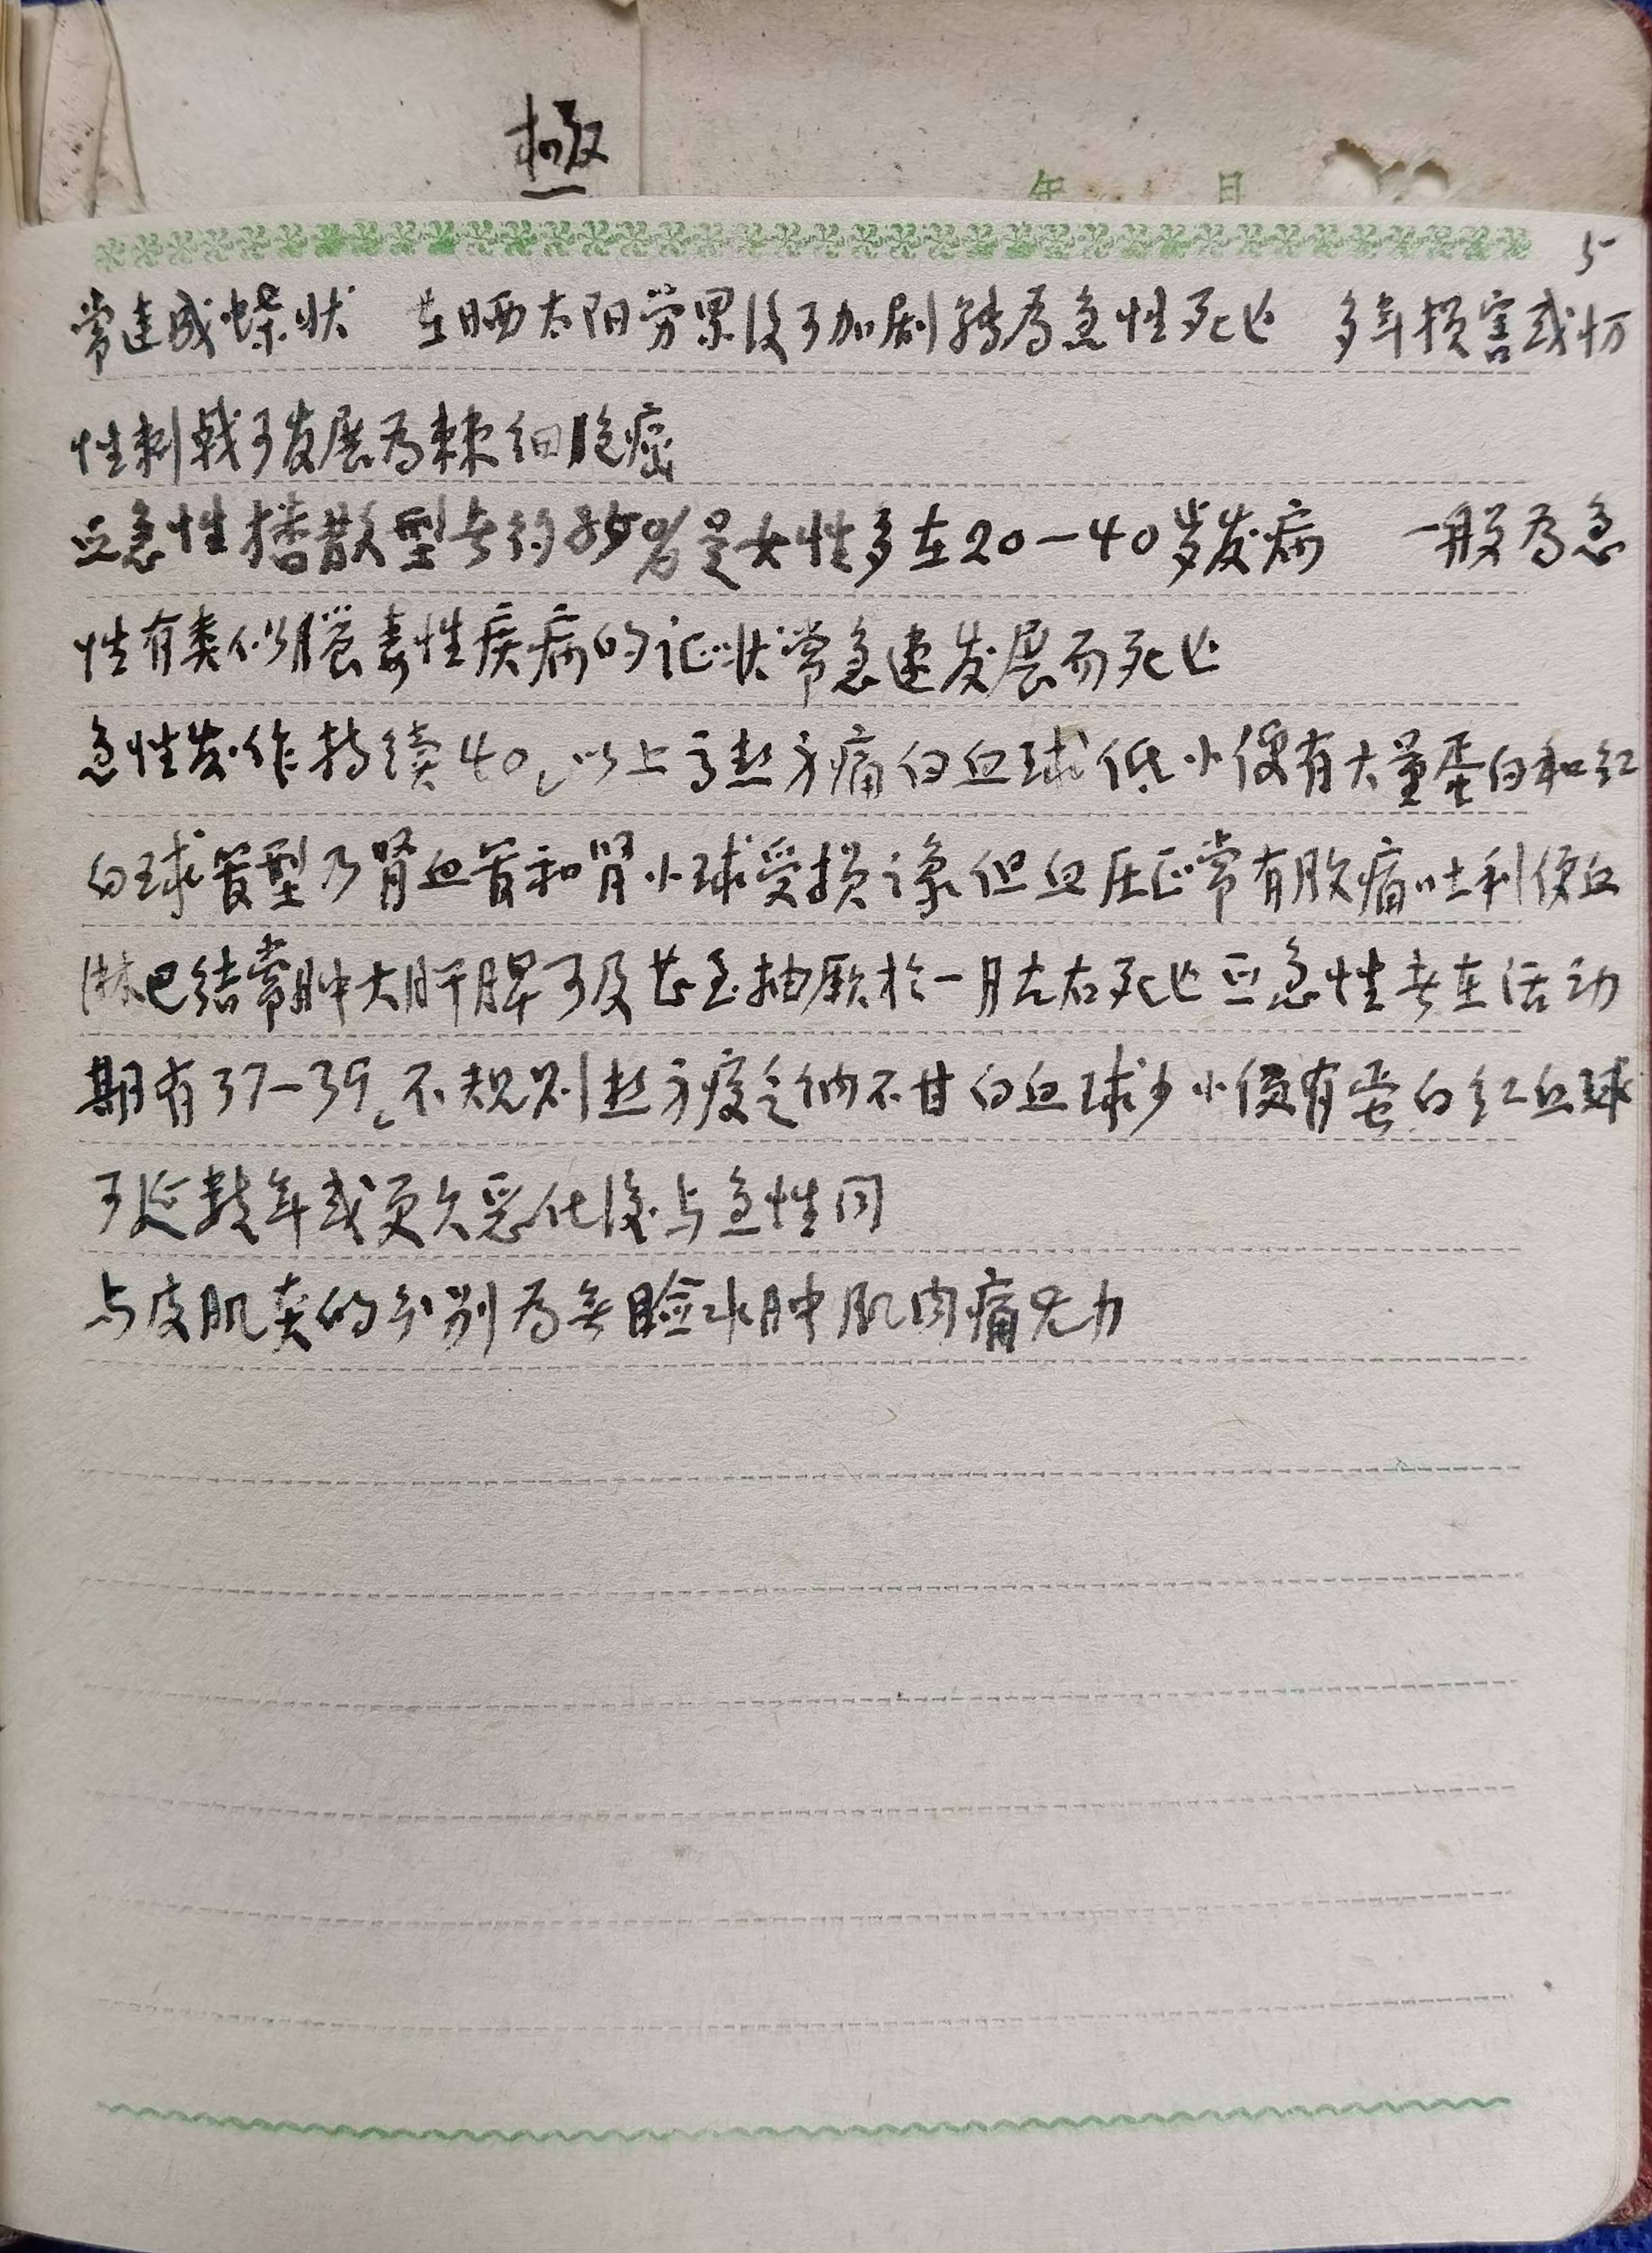 極
年 月
5
常连成蝶状 在晒太阳劳累後可加剧转为急性死亡 多年损害或
性刺戟可发展为棘细胞癌
急性播散型者约 是女性多在20—40岁发病 一般为急
性有类似脓毒性疾病的证状常急速发展而死亡
急性发作持续40℃以上高热身痛白血球低小便有大量蛋白和红
白球管型乃肾血管和肾小球受损 但血压正常有腹痛吐利便血
淋巴结常肿大肝脾可及甚至抽厥於一月左右死亡亚急性者在活动
期有37—39℃不规则热身疲乏纳不甘白血球少小便有蛋白红血球
可延数年或更久恶化後与急性同
与皮肌炎的分别为无睑水肿肌肉痛无力